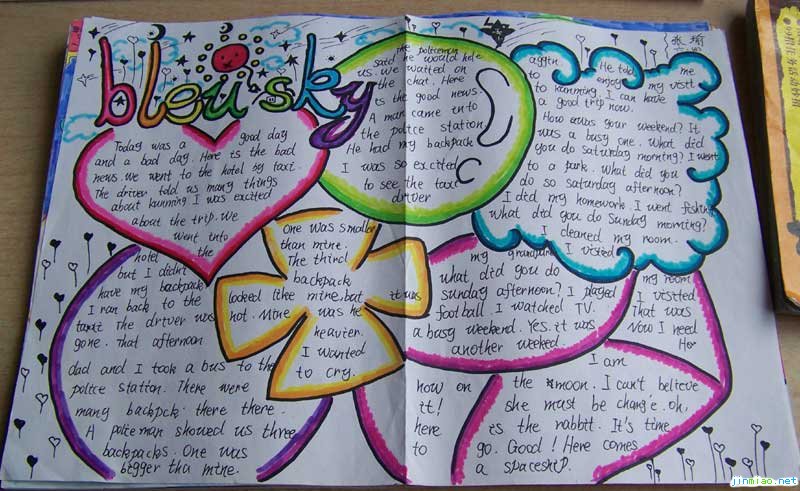 bleu sky
Today was a good day
and a bad day. Here is the bad
news. We went to the hotel by taxi.
The driver told us many things
about kunming I was excited
about the trip. We
went into
the
hotel
but I didn't
have my backpack
I ran back to the
taxi the driver was
gone. That afternoon
dad and I took a bus to the
police station. There were
many backpck there there.
A policeman showed us three
backpacks. One was
bigger tha mine.
One was smaller
than mine.
The third
backpack
looked like mine. but it was
not. Mine was he
heavier.
I wanted
to cry.
the policeman
said he would help
us. We waited on
the chat. Here
is the good news.
A man came into
the police station
He had my backpack
I was so excited
to see the taxi
driver
again He told me
to enjoy my visit
to kunming. I can have
a good trip now.
How was your weekend? It
was a busy one. What did
you do saturday morning? I went
to a park. What did you
do so saturday afternoon?
I did my homework. I went fishing
what did you do Sunday morning?
I cleaned my room.
I visited
my grandparents
what did you do
sunday afternoon? I played
football. I watched TV.
a busy weekend. Yes. it was
another weeked.
my room
I visited
That was
Now I need
I am
now on the moon. I can't believe
it! she must be chang'e. oh,
here is the rabbit. It's time
to go. Good! Here comes
a spaceship.
jinmiao.net